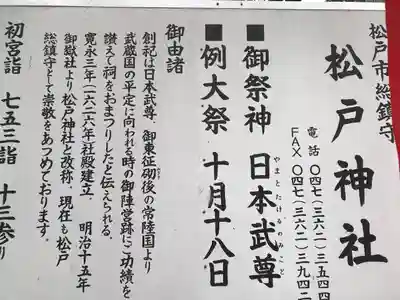 松戸市総鎮守
松戸神社
電話 〇四七(三六二)三五四四
FAX 〇四七(三六二)三九四二
■御祭神 日本武尊
やまとたけるのみこと
■例大祭 十月十八日
御由諸
創祀は日本武尊、御東征砌後の常陸国より
武蔵国の平定に向われる時の御陣営跡にご功績を
讃えて祠をおまつりしたと伝えられる。
寛永三年(一六二六年)社殿建立、明治十五年
御嶽社より松戸神社と改称、現在も松戸
総鎮守として崇敬をあつめております。
初宮詣 七五三詣 十三参り